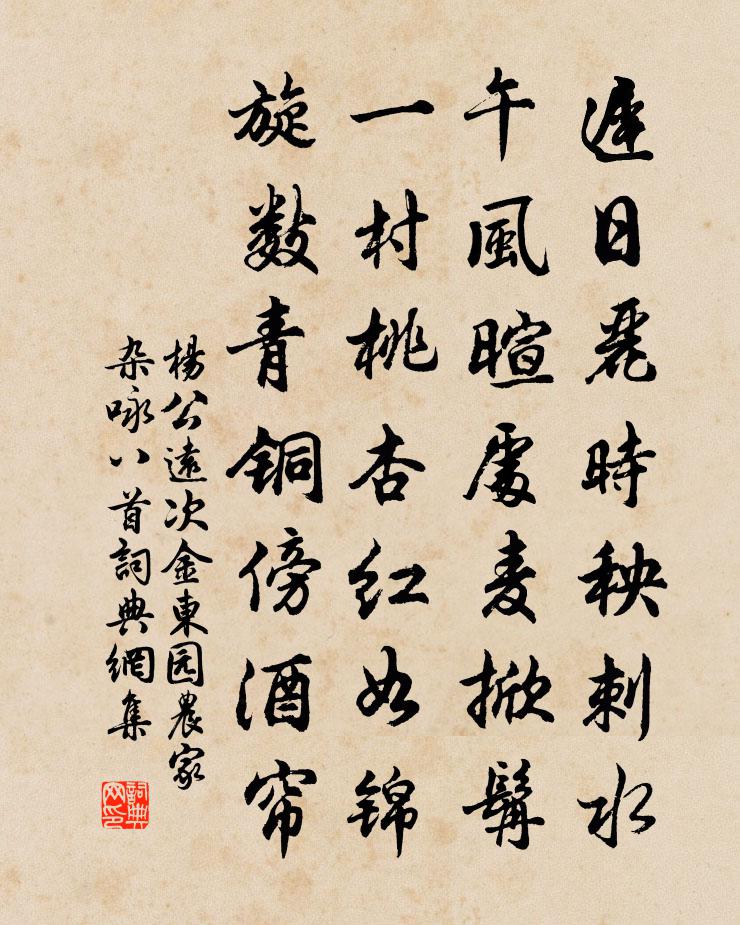 遲日麗時秧刺水
午風暄處麦掀髯
一村桃杏红如锦
旋数青铜傍酒帘
楊公遠次金東园農家
杂咏八首詞典網集
詞典网印